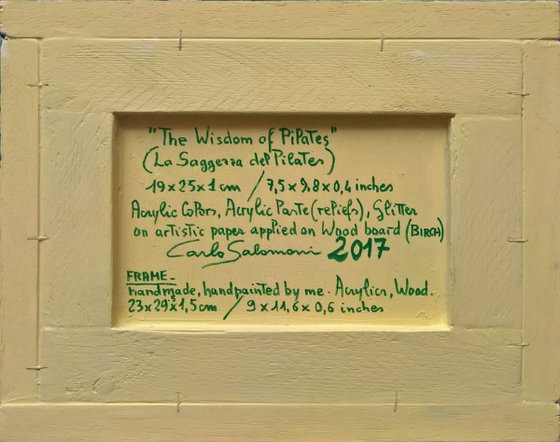 "The Wisdom of Pilates"
(La Saggezza del Pilates)
19x25x1 cm / 7,5x9,8x0,4 inches
Acrylic Colors, Acrylic Paste (reliefs), Glitter
on artistic paper applied on Wood board (BIRCH)
Carlo Salomoni 2017
FRAME_
handmade, handpainted by me. Acrylics, Wood.
23x29x1,5 cm / 9x11,6x0,6 inches